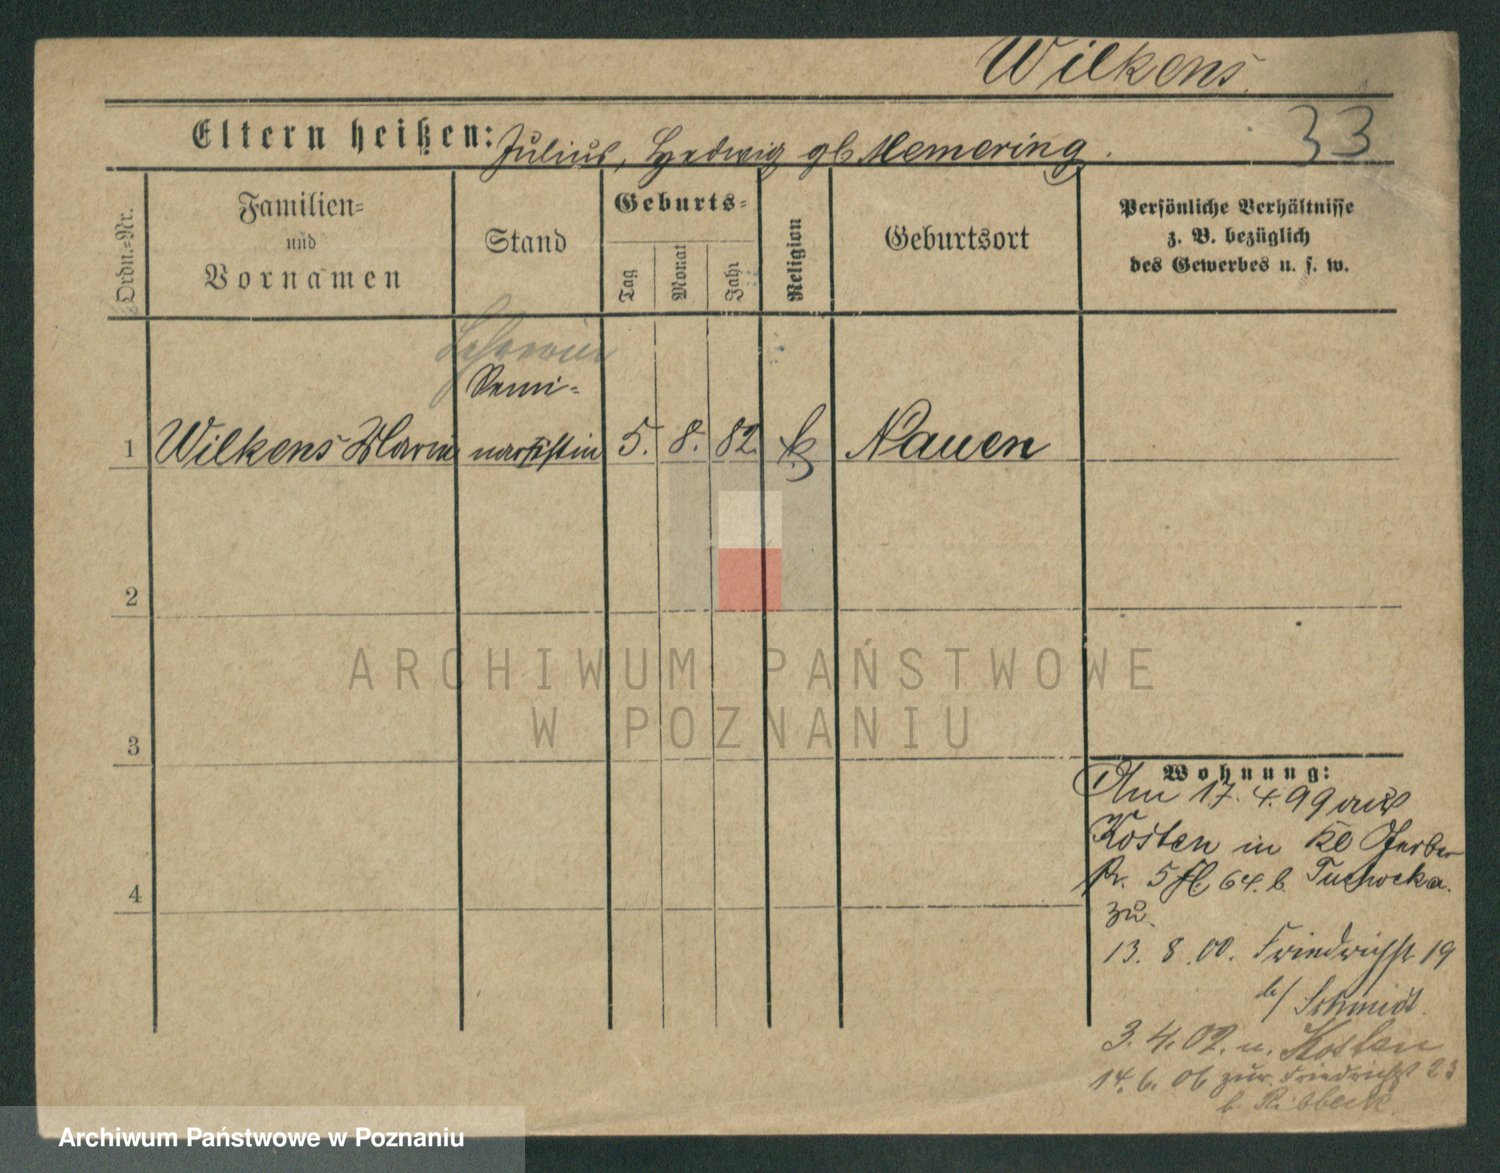 Wilkens
33
Eltern heißen: Julius, Hedwig gb Memering.
Ordn.=Nr.
Familien=
und
Vornamen
Stand
Geburts=
Tag
Monat
Jahr
Religion
Geburtsort
Persönliche Verhältnisse
z. B. bezüglich
des Gewerbes u. s. w.
Lehrerin
Semi=
1 Wilkens Marie naristin 5. 8. 82. k Nauen
2
3
4
Wohnung:
Am 17.4.99 aus
Kosten in Kl Gerber
str. 5 H. 64. b.
zu.
13. 8. 00. Friedrichst 19
b/ Schmidt.
3. 4. 02. n. Kosten
14. 6. 06 zur. Friedrichst 23
b. Ribbeck
ARCHIWUM PAŃSTWOWE
W POZNANIU
Archiwum Państwowe w Poznaniu